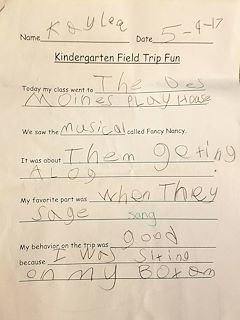 Name Kaylea Date 5-4-17
Kindergarten Field Trip Fun
Today my class went to The Des
Moines PLAY House
We saw the musical called Fancy Nancy.
It was about Them geting
ALOG .
My favorite part was when They
sage sang
My behavior on the trip was good
because I was siting
on my Botom